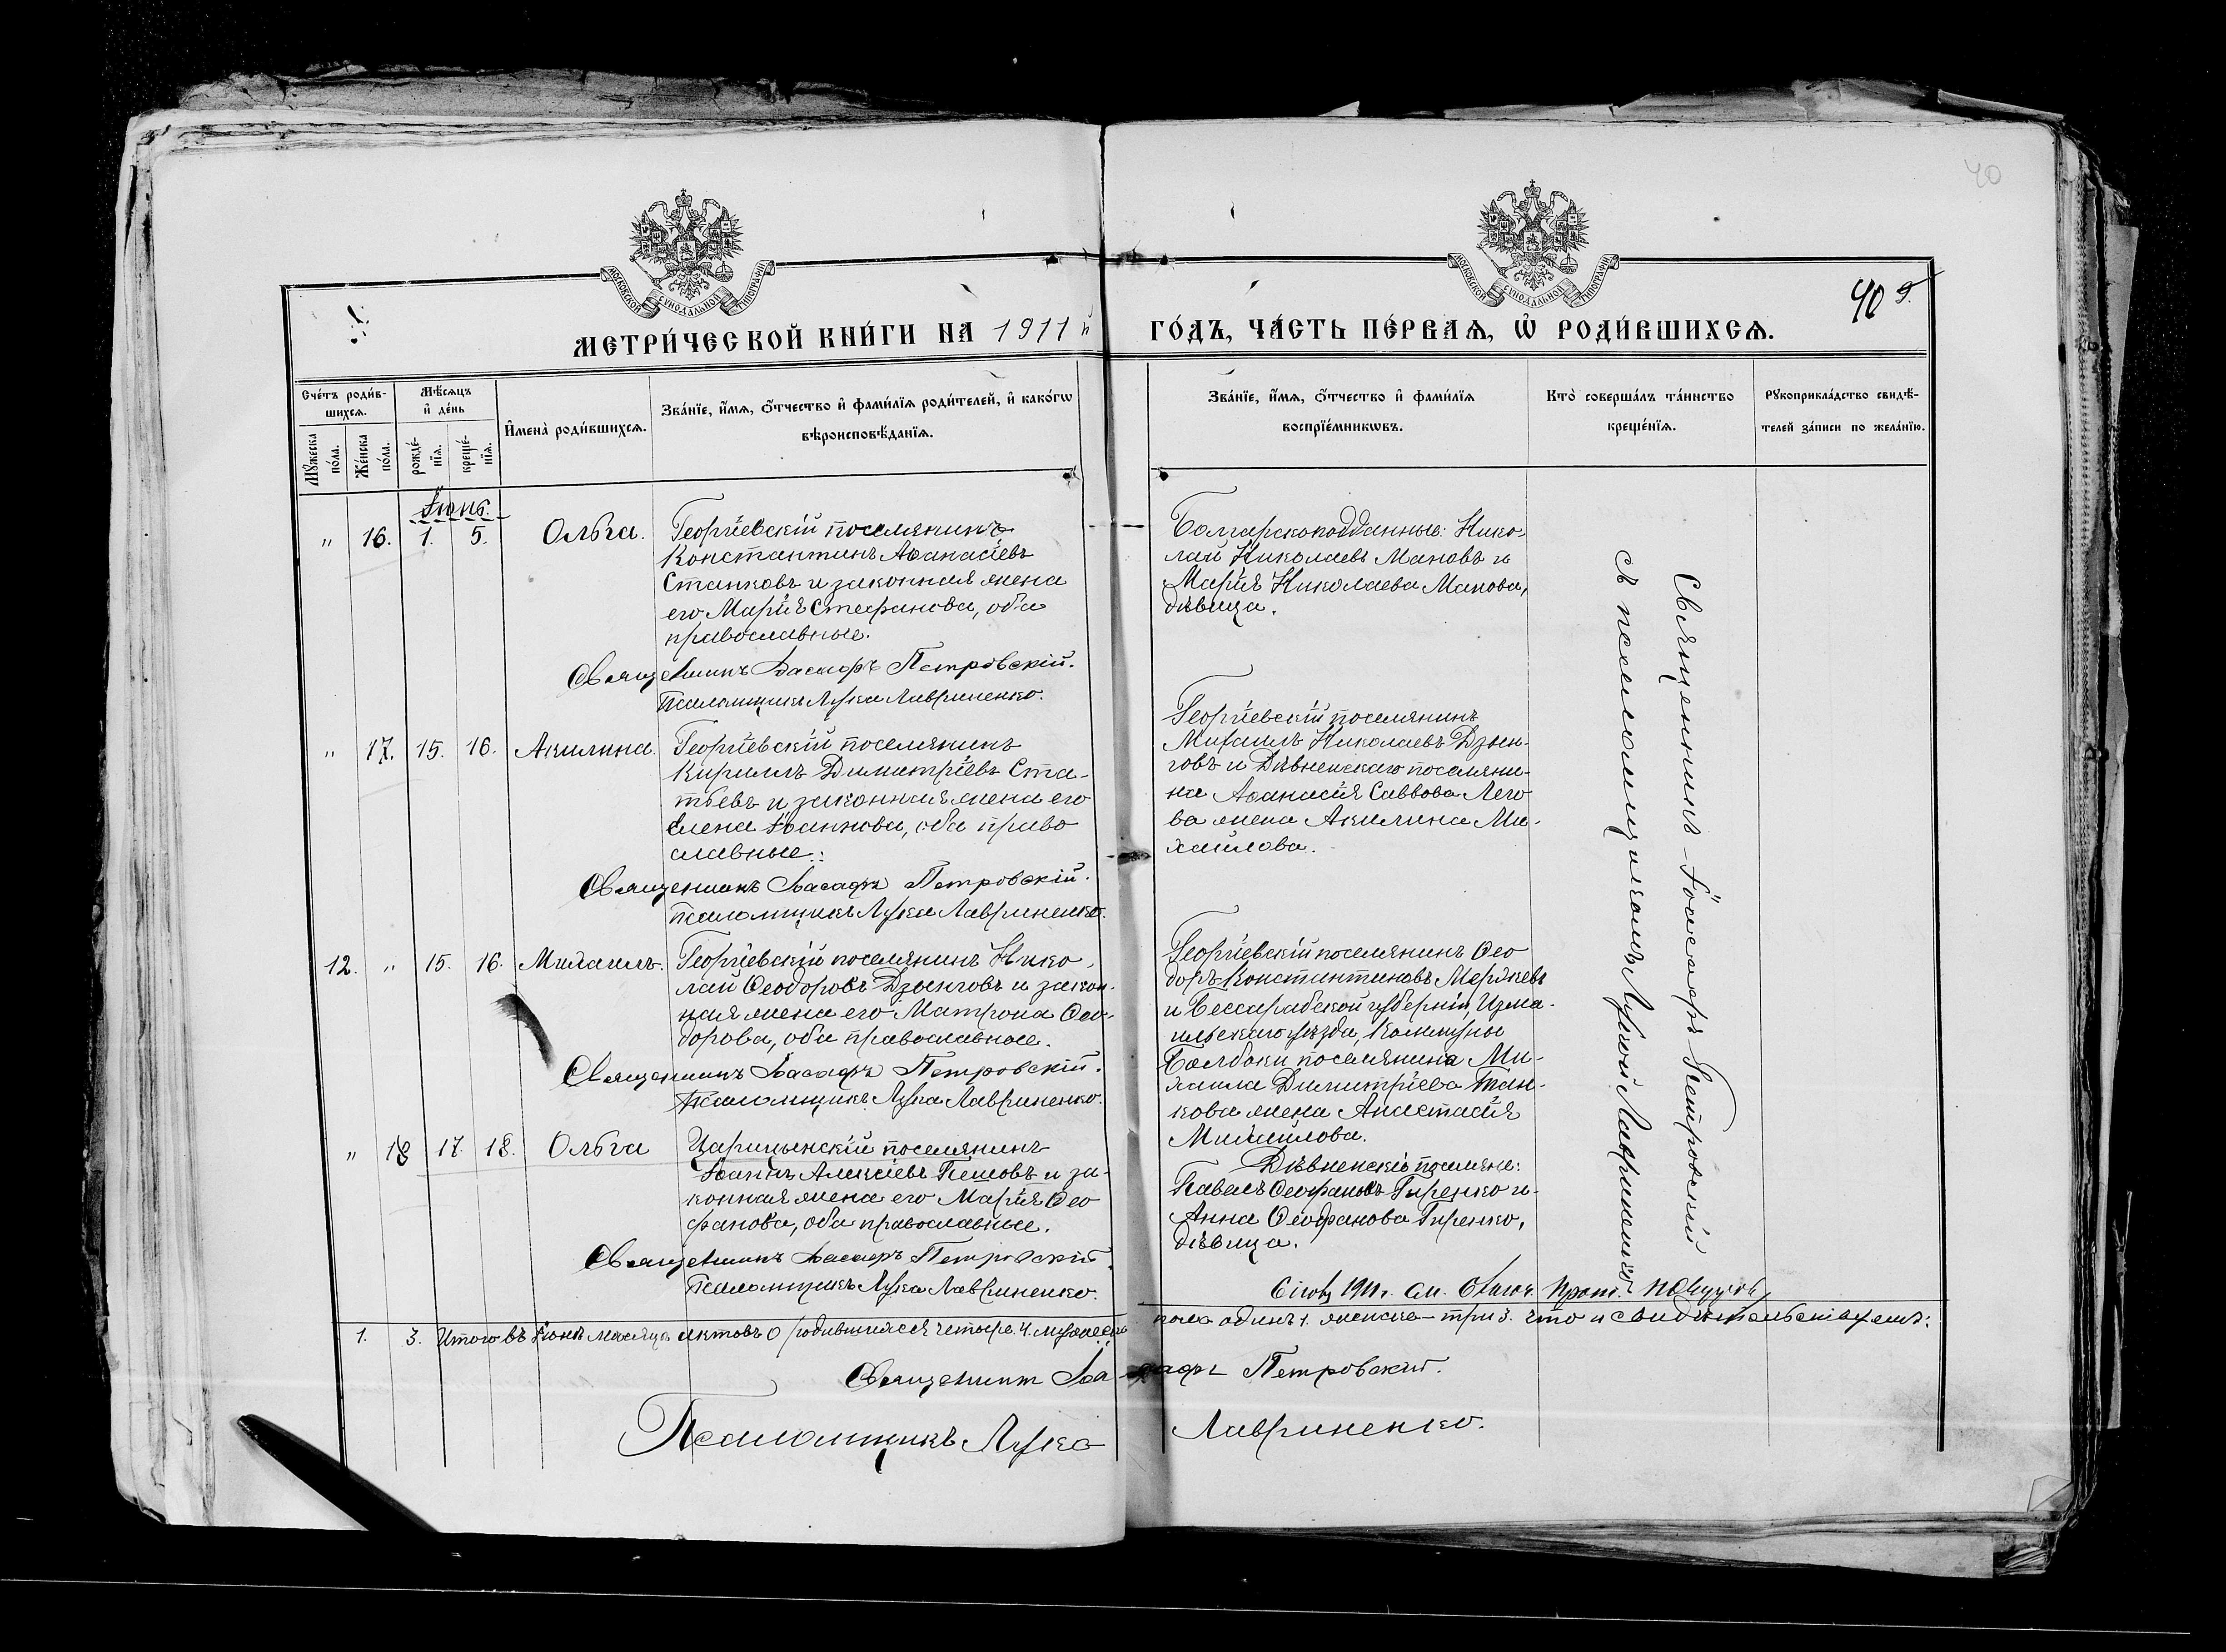 40
МОСКОВСКОЙ СѴНОДАЛЬНОЙ ТИПОГРАФІИ
МОСКОВСКОЙ СѴНОДАЛЬНОЙ ТИПОГРАФІИ
40
МЕТРИ́ЧЕСКОЙ КНИ́ГИ НА 1911 й ГО́ДЪ, ЧА́СТЬ ПЕ́РВАѦ, Ѡ҆ РОДИ́ВШИХСѦ.
Сче́тъ роди́в-
шихсѧ.
Мѣ́сѧцъ
и҆ де́нь
И҆мена̀ роди́вшихсѧ.
Зва́нїе, и҆́мѧ, ѻ҆́тчество и҆ фами́лїѧ роди́телей, и҆ како́гѡ
вѣроисповѣ́данїѧ.
Зва́нїе, и҆́мѧ, ѻ҆́тчество и҆ фами́лїѧ
воспрїе́мникѡвъ.
Кто̀ соверша́лъ та́инство
креще́нїѧ.
Рꙋкоприкла́дство свидѣ́-
телей за́писи по жела́нїю.
Мꙋ́жеска
по́ла.
Же́нска
по́ла.
рожде́-
нїѧ.
креще́-
нїѧ.
Іюнь.
" 16. 1. 5. Ольга. Георгіевскій поселянинъ
Константинъ Аѳанасіевъ
Станковъ и законная жена
его Марія Стефанова, оба
православные.
Священникъ Іоасафъ Петровскій.
Псаломщикъ Лука Лавриненко.
Болгарскоподданные: Нико-
лай Николаевъ Мановъ и
Марія Николаева Манова,
дѣвица.
" 17. 15. 16. Акилина. Георгіевскій поселянинъ
Кириллъ Димитріевъ Ста-
тьевъ и законная жена его
Елена Іоаннова, оба право
славные.
Священникъ Іоасафъ Петровскій.
Псаломщикъ Лука Лавриненко.
Георгіевскій поселянинъ
Михаилъ Николаевъ Дзын-
говъ и Дѣвненскаго поселяни-
на Аѳанасія Саввова Лего
ва жена Акилина Ми-
хаилова.
12. " 15. 16. Михаилъ. Георгіевскій поселянинъ Нико-
лай Ѳеодоровъ Дзынговъ и закон-
ная жена его Матрона Ѳео-
дорова, оба православные.
Священникъ Іоасафъ Петровскій.
Псаломщикъ Лука Лавриненко.
Георгіевскій поселянинъ Ѳео
доръ Константиновъ
и Бессарабской губерніи, Изма-
ильскаго уѣзда, коммуны
Болбоки поселянина Ми-
хаила Димитріева
жена Анастасія
Михаилова.
" 18 17. 18. Ольга Царицынскій поселянинъ
Іоаннъ Алексіевъ Пешовъ и за-
конная жена его Марія Ѳео
фанова, оба православные.
Священникъ Іоасафъ Петровскій.
Псаломщикъ Лука Лавриненко.
Дѣвненскіе поселяне:
Павелъ Ѳеофановъ Гиренко и
Анна Ѳеофанова Гиренко,
дѣвица.
Священникъ Іоасафъ Петровскій
съ псаломщикомъ Лукой Лавриненко
1911 г.
1. 3. Итого въ Іюнѣ мѣсяцѣ актовъ о родившихся четыре 4. мужеска пола одинъ 1. женска – три 3. что и свидѣтельствуемъ:
Священникъ Іоасафъ Петровскій.
Псаломщикъ Лука Лавриненко.